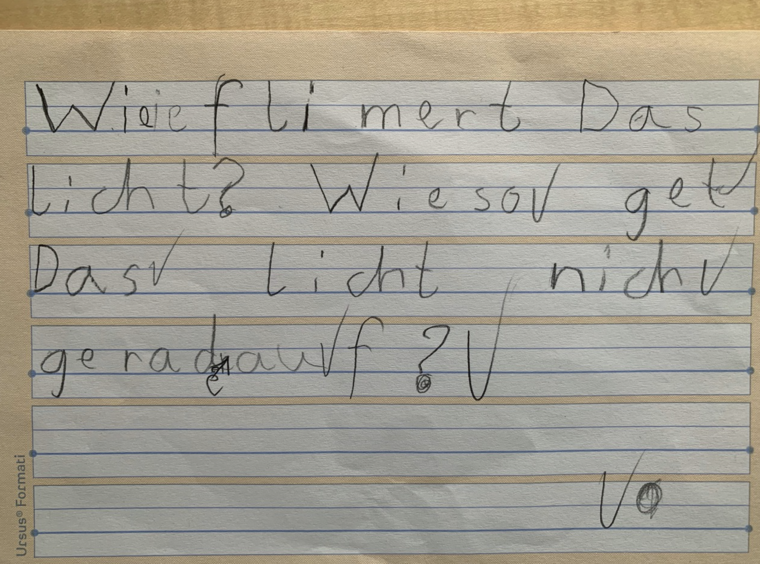 Wieie flimert Das
Licht? Wieso get
Das Licht nich
geradeauf?
Ursus® Formati